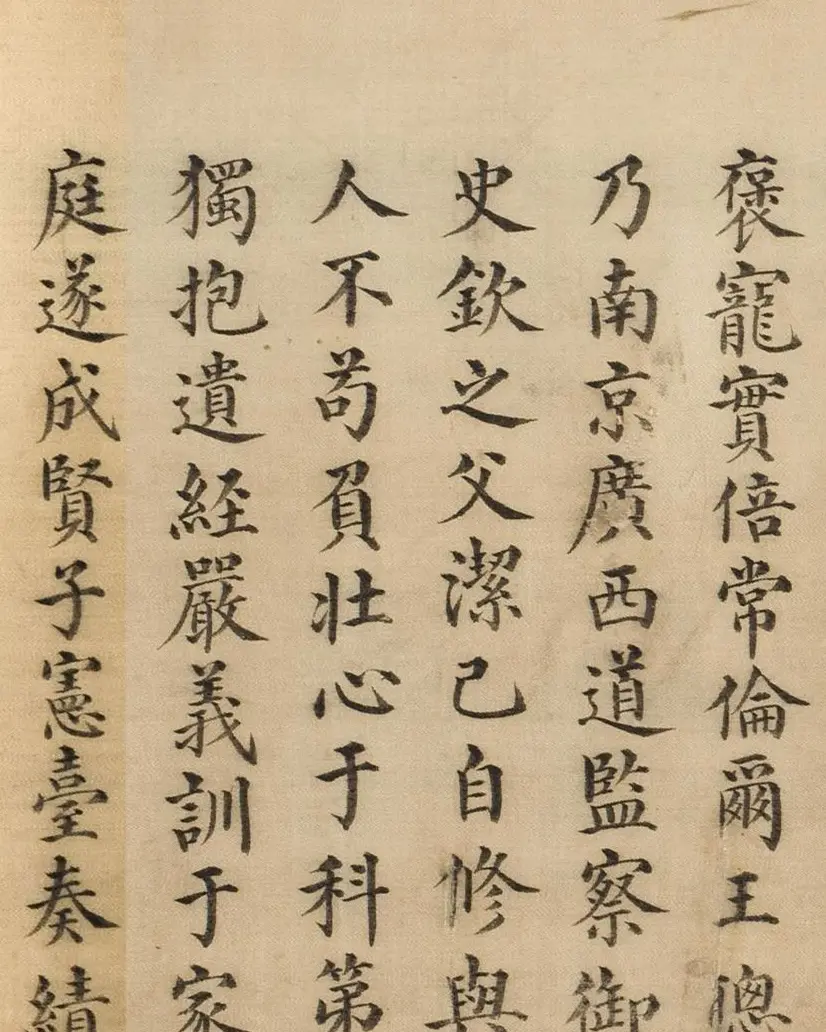 褒寵實倍常倫爾王
乃南京廣西道監察御
史欽之父潔己自修與
人不苟負壮心于科第
獨抱遺経嚴義訓于家
庭遂成賢子憲臺奏績